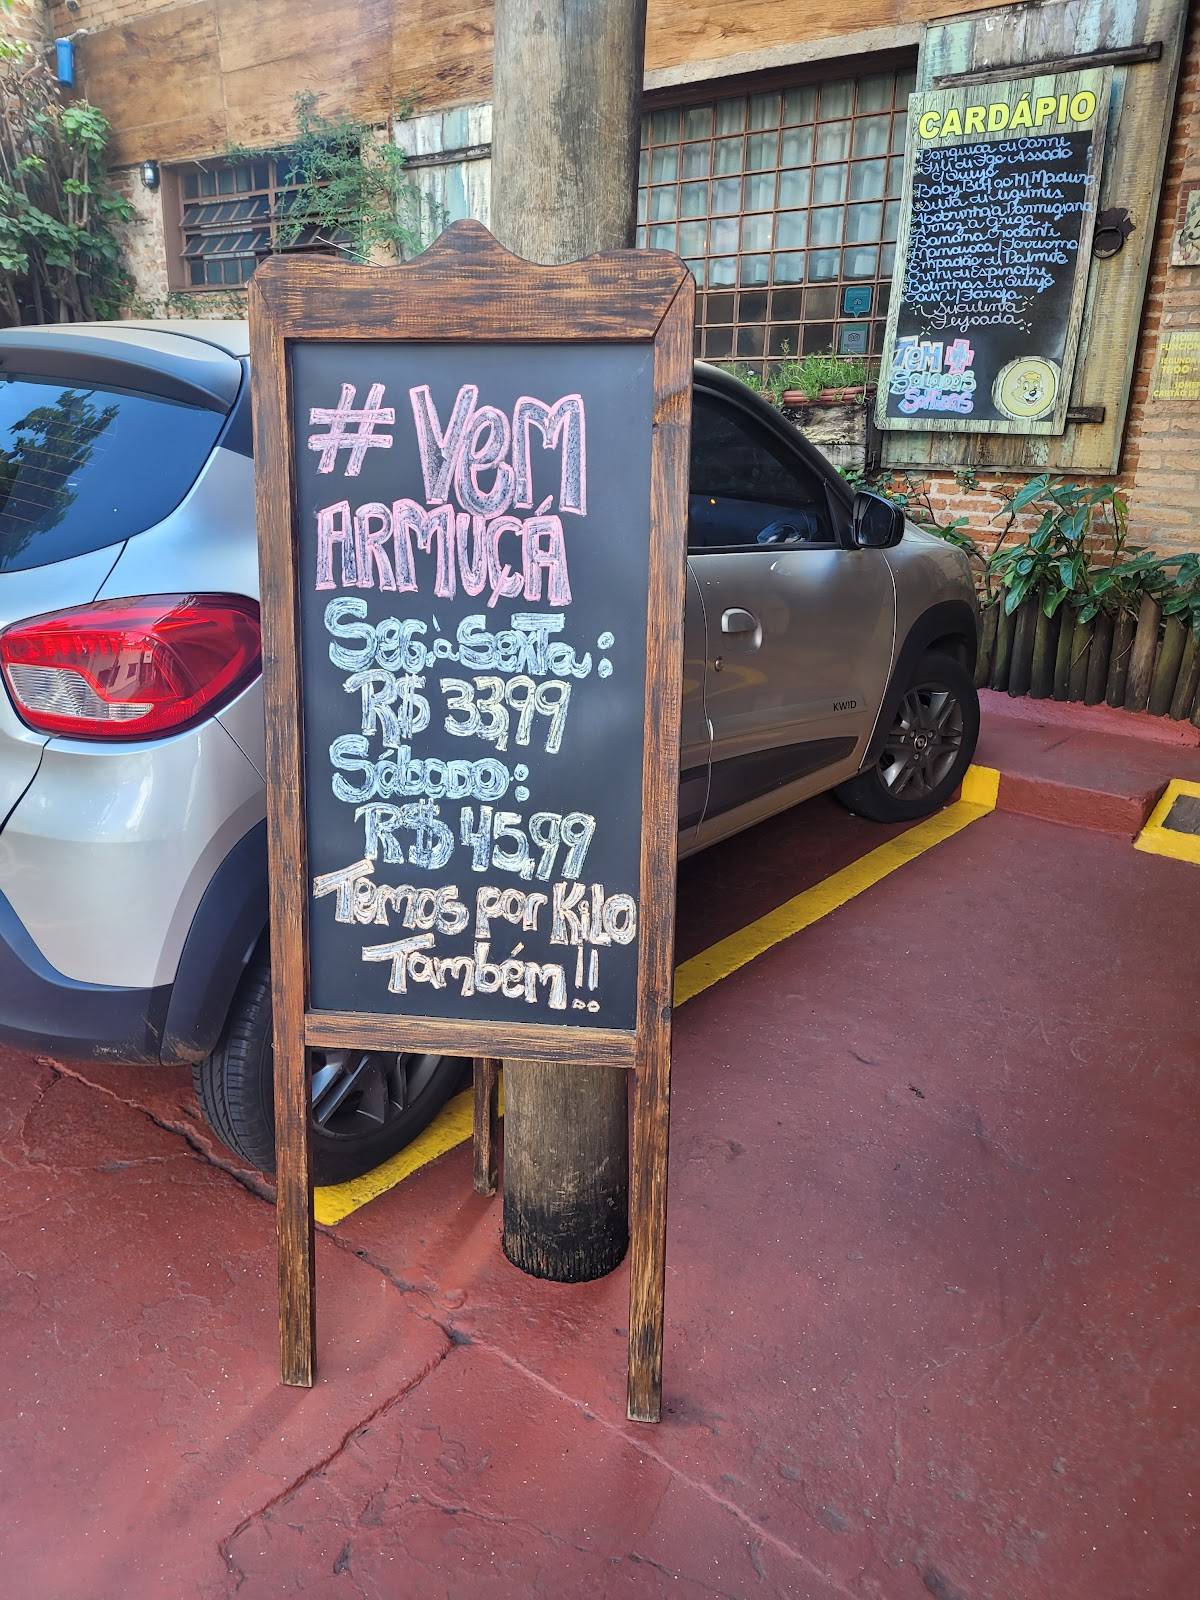 # Vem
ARMUÇÁ
Seg. à Sexta:
R$ 33,99
Sábado:
R$ 45,99
Temos por Kilo
Também!!
CARDÁPIO
Panqueca di Carne
Assado
c/ Queijo
Baby Beef ao M. Madeira
di Legumes
Abobrinha Parmegiana
Arroz à Grega
Banana
Mandioca / Torresmo
Empadão di Palmito
di Espinafre
Bolinhos di Queijo
Couve / Farofa
Suculenta
Feijoada
Tem +
Saladas
KWID